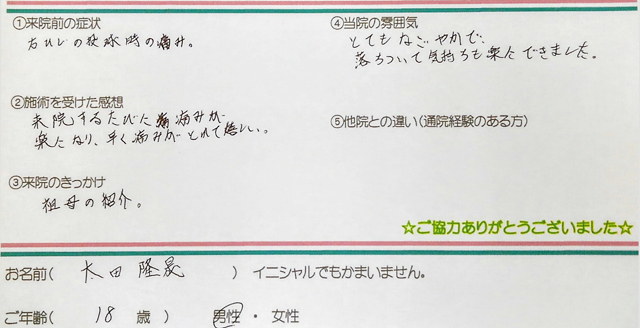 ①来院前の症状
右ひじの投球時の痛み。
②施術を受けた感想
来院するたびに痛みが
楽になり、早く痛みがとれて嬉しい。
③来院のきっかけ
祖母の紹介。
④当院の雰囲気
とてもなごやかで、
落ちついて気持ちも楽にできました。
⑤他院との違い(通院経験のある方)
☆ご協力ありがとうございました☆
お名前( 太田隆晟 ) イニシャルでもかまいません。
ご年齢( 18 歳 ) 男性 ・ 女性